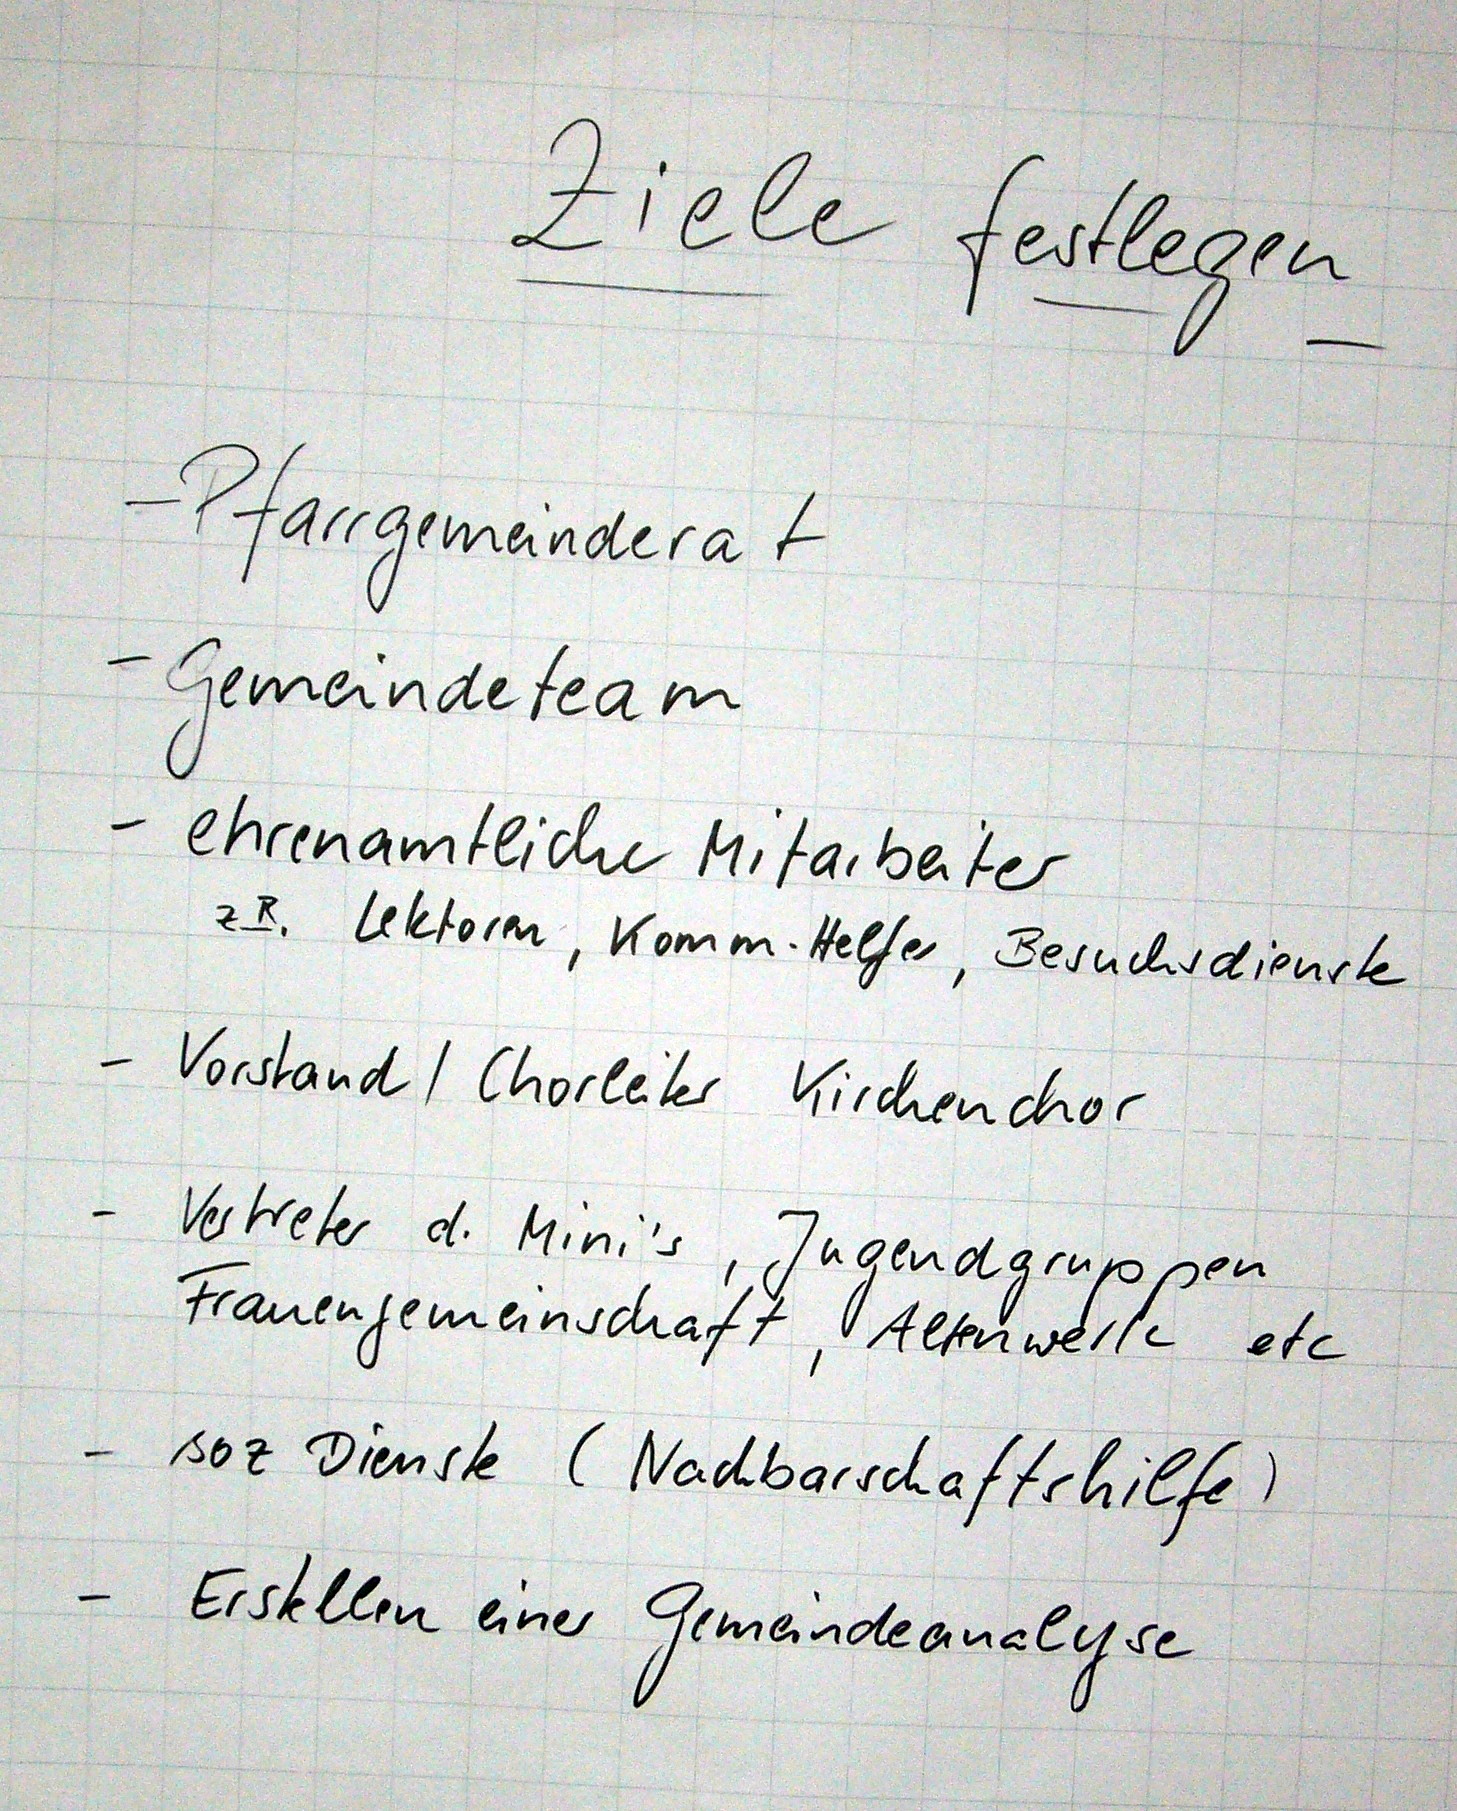 Ziele festlegen
- Pfarrgemeinderat
- Gemeindeteam
- ehrenamtliche Mitarbeiter
z.B. Lektoren, Komm.-Helfer, Besuchsdienste
- Vorstand / Chorleiter Kirchenchor
- Vertreter d. Mini's, Jugendgruppen
Frauengemeinschaft, Altenwerk etc
- soz Dienste (Nachbarschaftshilfe)
- Erstellen einer Gemeindeanalyse